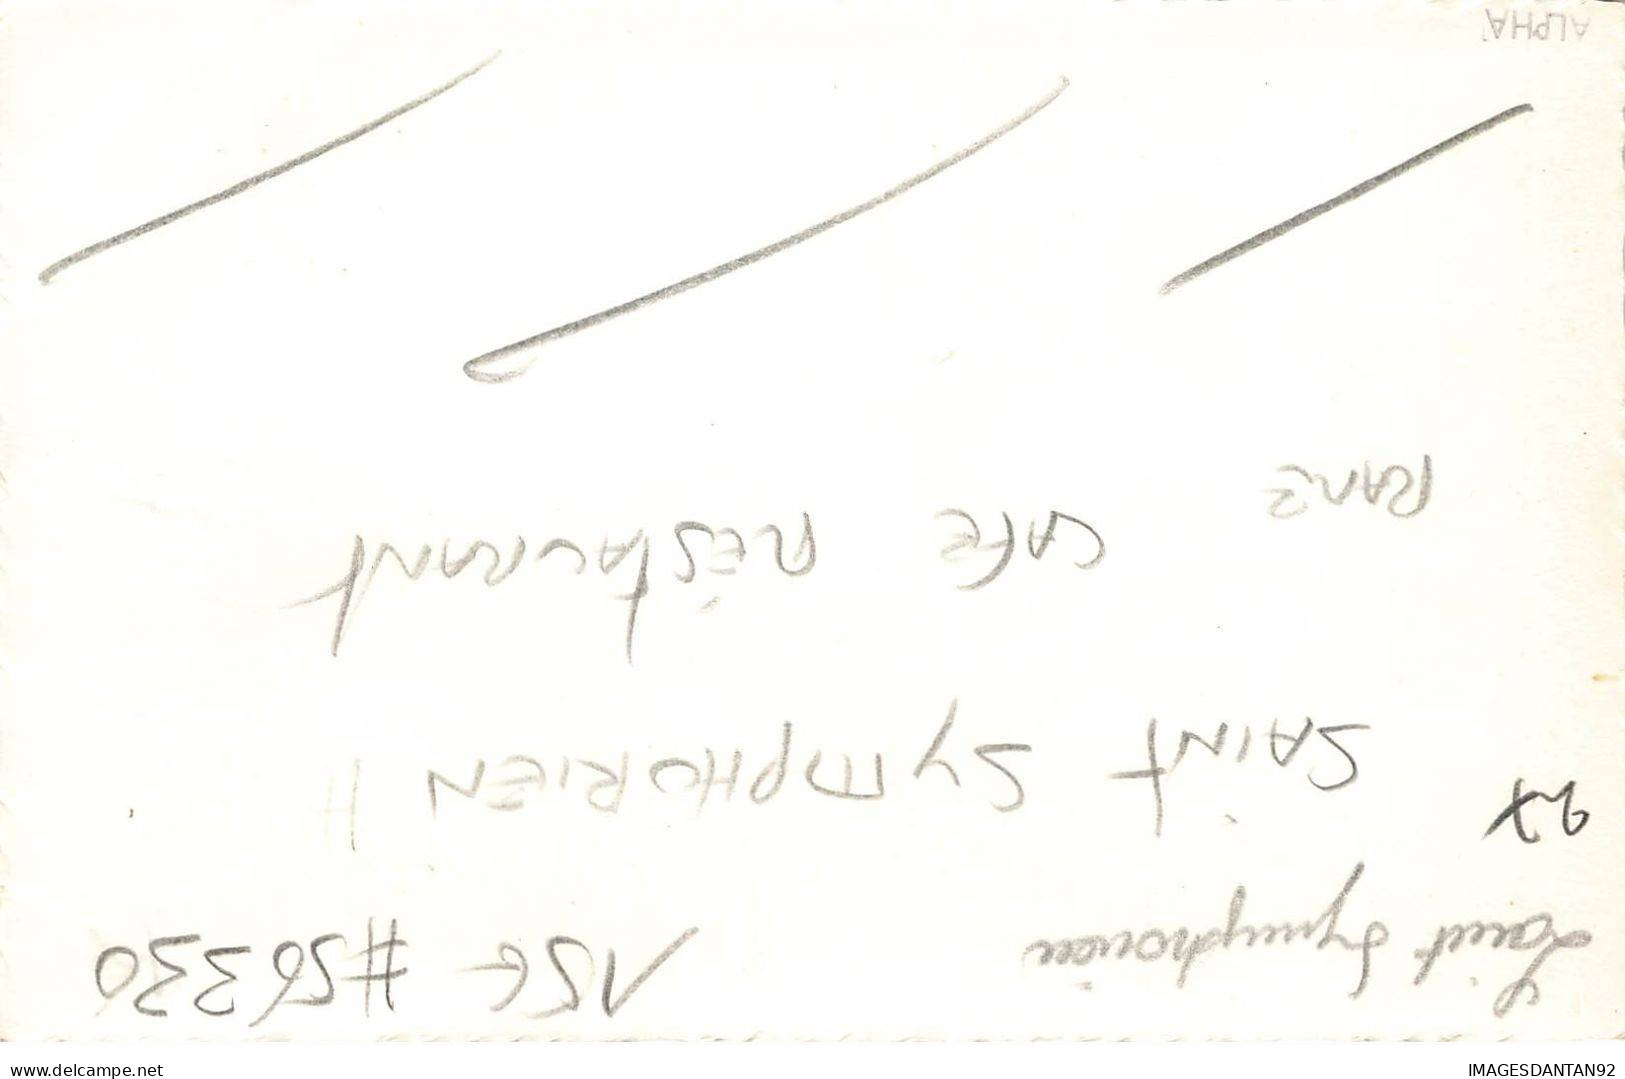 Saint Symphorien 15€ #56330
97
SAINT SYMPHORIEN //
CAFE RESTAURANT
RARE
ALPHA
www.delcampe.net
IMAGESDANTAN92